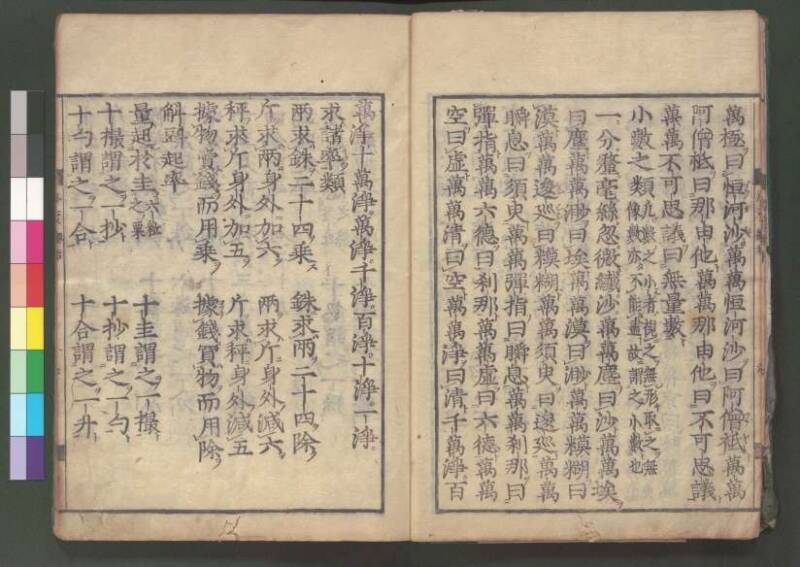 萬極曰恒河沙萬萬恒河沙曰阿僧祇萬萬
阿僧祇曰那由他萬萬那由他曰不可思議
萬萬不可思議曰無量數
小數之類凡數之小者視之無形取之無像數亦不能盡故謂之小數也
一分釐毫絲忽微纖沙萬萬塵曰沙萬萬埃
曰塵萬萬渺曰埃萬萬漠曰渺萬萬模糊曰
漠萬萬逡巡曰模糊萬萬須臾曰逡巡萬萬
瞬息曰須臾萬萬彈指曰瞬息萬萬刹那曰
彈指萬萬六德曰刹那萬萬虛曰六德萬萬
空曰虛萬萬清曰空萬萬淨曰清千萬淨百
萬淨十萬淨萬淨千淨百淨十淨一淨
求諸率類
兩求銖二十四乘 銖求兩二十四除
斤求兩身外加六 兩求斤身外減六
秤求斤身外加五 斤求秤身外減五
據物買錢而用乘 據錢買物而用除
斛㪷起率
量起於圭六粒之粟 十圭謂之一撮
十撮謂之一抄 十抄謂之一勺
十勺謂之一合 十合謂之一升